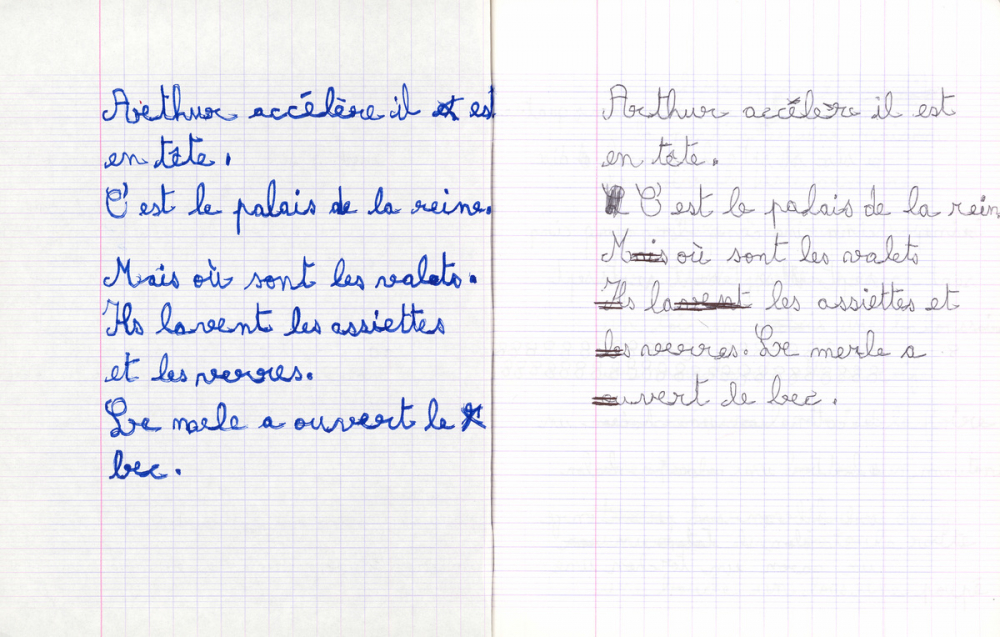 Arthur accélère il est
en tête.
C'est le palais de la reine.
Mais où sont les valets.
Ils lavent les assiettes
et les verres.
Le merle a ouvert le
bec.
Arthur accélère il est
en tête.
C'est le palais de la rein
Mais où sont les valets
Ils lavent les assiettes et
les verres. Le merle a
ouvert le bec.